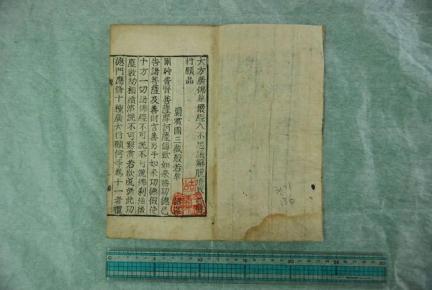 大方廣佛華嚴經入不思議解脫境界普賢
行願品
罽賓國三藏般若奉 詔譯
爾時普賢菩薩摩訶薩稱歎如來勝功德已
告諸菩薩及善財言善男子如來功德假使
十方一切諸佛經不可說不可說佛刹極微
塵數劫相續演說不可窮盡若欲成就此功
德門應修十種廣大行願何等爲十一者禮